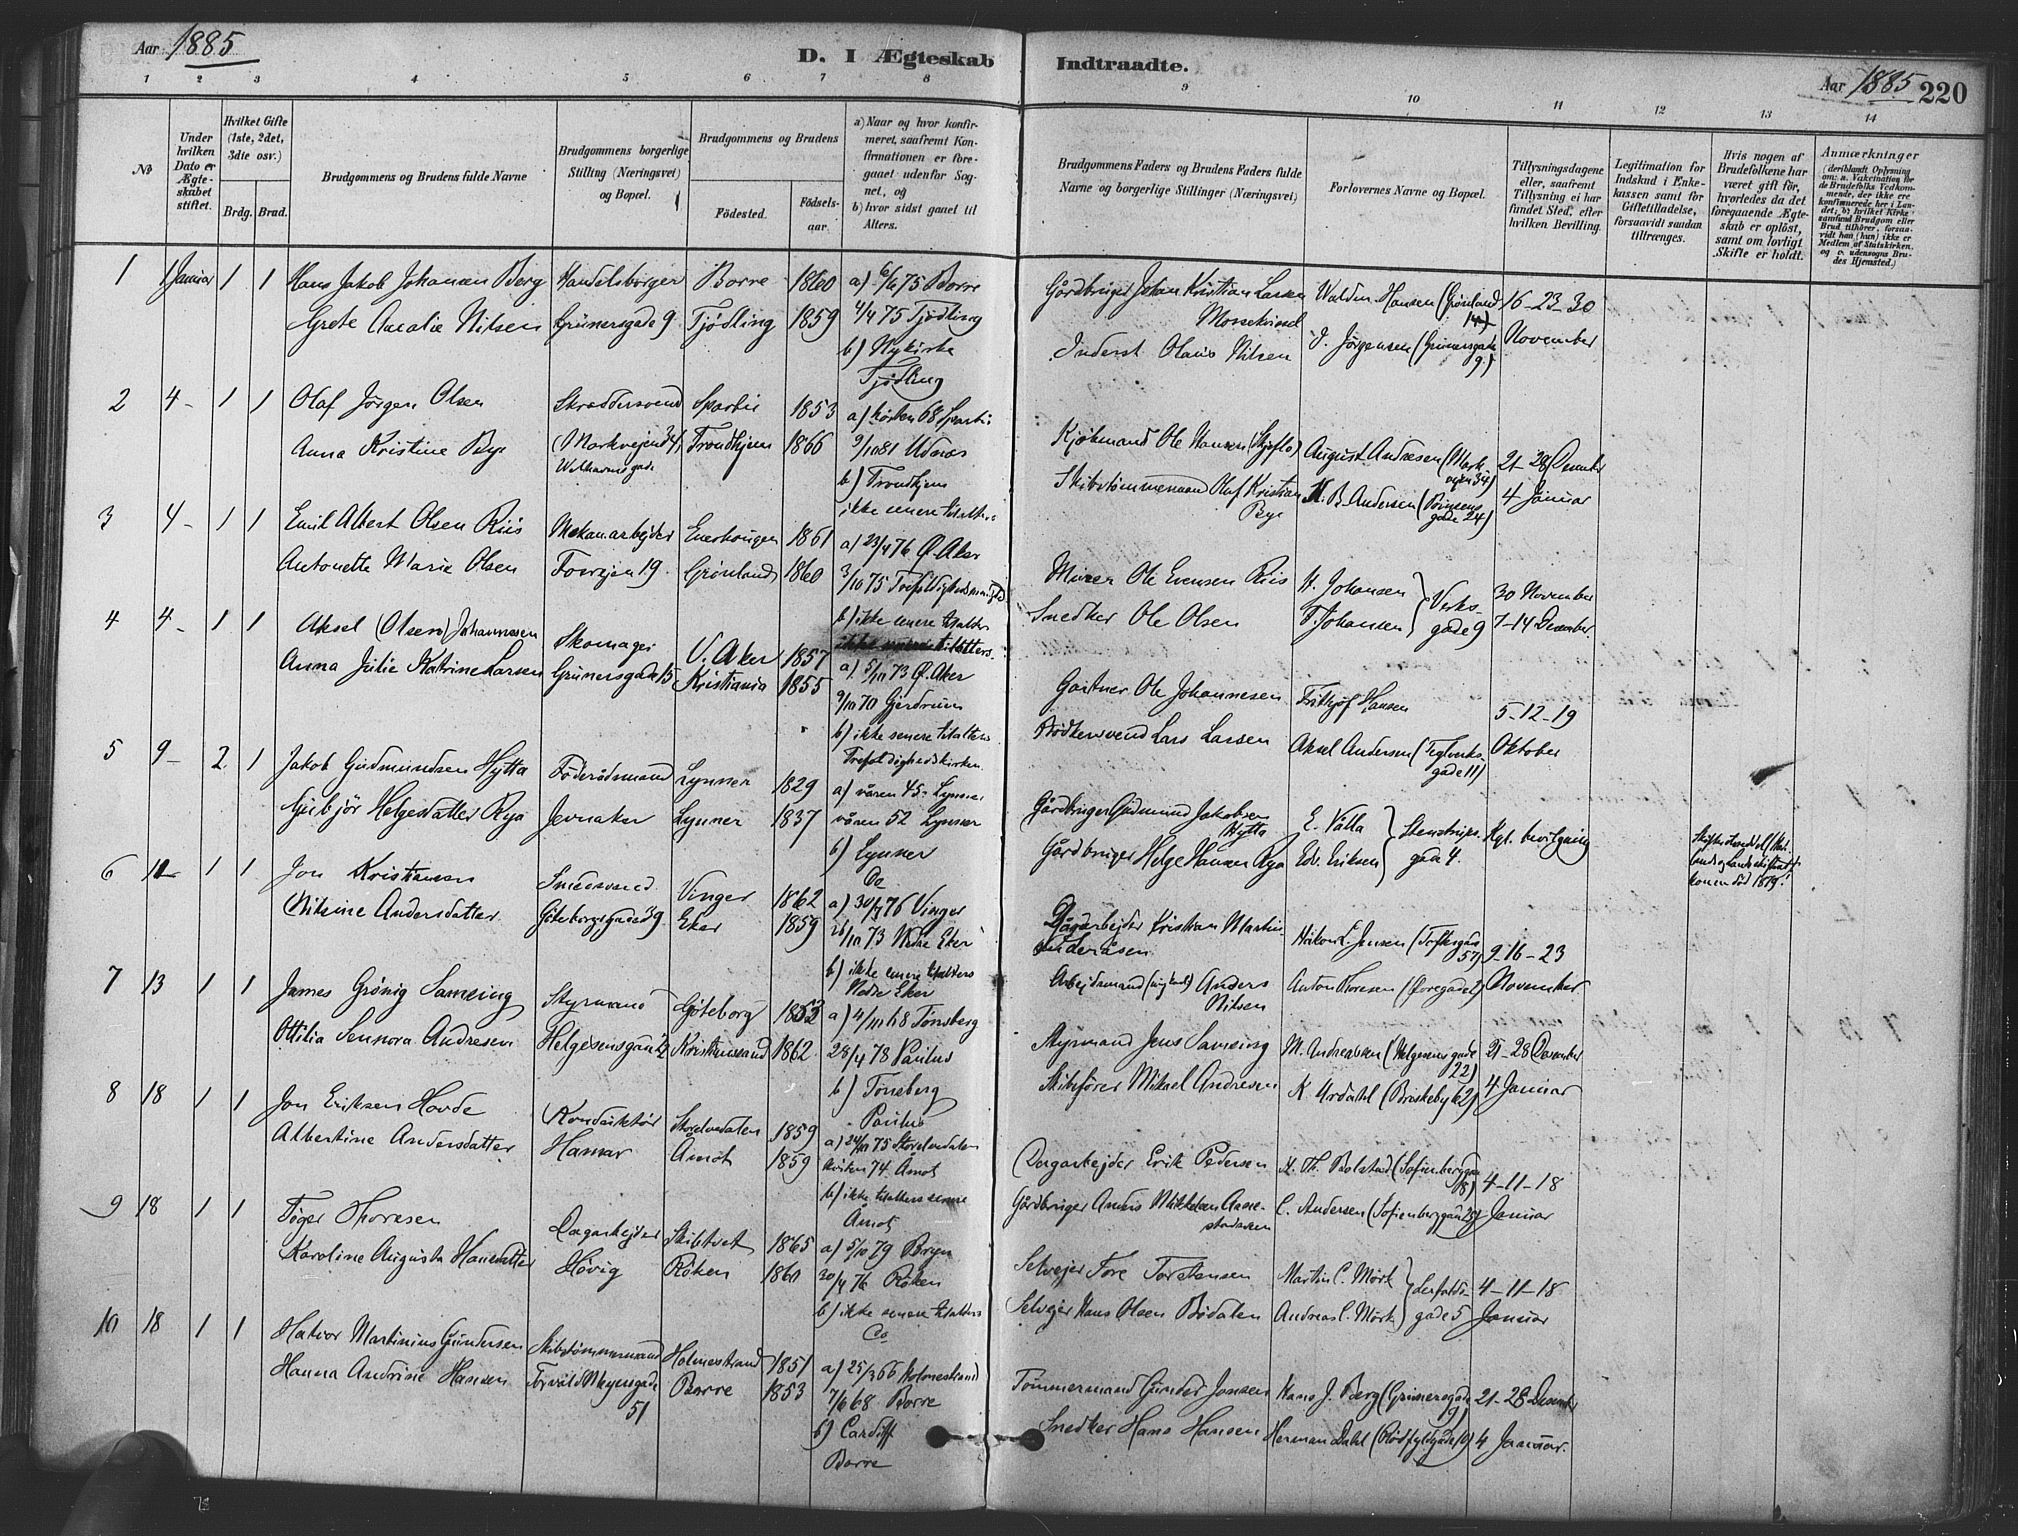 Aar 1885
D. I Ægteskab Indtraadte.
Aar 1885 220
1 2 3 4 5 6 7 8 9 10 11 12 13 14
No
Under hvilken Dato er Ægteskabet stiftet.
Hvilket Gifte (1ste, 2det, 3die osv.)
Brdg. Brud.
Brudgommens og Brudens fulde Navne
Brudgommens borgerlige Stilling (Næringsvei) og Bopæl.
Brudgommens og Brudens
Födested.
Födselsaar.
a) Naar og hvor konfirmeret, saafremt Konfirmationen er foregaaet udenfor Sognet, og
b) hvor sidst gaaet til Alters.
Brudgommens Faders og Brudens Faders fulde Navne og borgerlige Stillinger (Næringsvei)
Forlovernes Navne og Bopæl.
Tillysningsdagene eller, saafremt Tillysning ei har fundet Sted, efter hvilken Bevilling.
Legitimation for Indskud i Enkekassen samt for Giftetilladelse, forsaavidt saadan tiltrænges.
Hvis nogen af Brudefolkene har været gift för, hvorledes da det foregaaende Ægteskab er oplöst, samt om lovligt Skifte er holdt.
Anmærkninger
1 1 Januar 1 1 Hans Jakob Johansen Berg Handelsborger Borre 1860 a) 6/6 75 Borre Gårdbruger Johan Kristian Larsen Waldm. Hansen (Grönland 14) 16-23-30
Grete Amalie Nilsen Grünersgade 9 Tjödling 1859 4/4 75 Tjödling Inderst Olaus Nilsen J. Jörgensen (Grünersgade 9) November
b) Nykirke
Tjödling
2 4 - 1 1 Olaf Jörgen Olsen Skræddersvend 1853 a) hösten 68 Kjöbmand Ole Hansen August Andresen (Markvejen 34) 21-28 December
Anna Kristine Bye (Markvejen 34) Trondhjem 1866 9/10 81 Udnæs Skibstömmermand Olaf Kristian Bye B. Andersen 4 Januar
b) Trondhjem
ikke senere tilalters
3 4 - 1 1 Emil Albert Olsen Riis Mekanarbejder Enerhougen 1861 a) 23/4 76 Ö. Aker Murer Ole Evensen Riis H. Johansen 30 November
Antonette Marie Olsen Fossvejen 19. Grönland 1860 3/10 75 Snedker Ole Olsen T. Johansen Verksgade 9 7-14 December.
b) ikke senere tilalters
4 4 - 1 1 Aksel (Olsen) Johannesen Skomager V. Aker 1857 a) 5/10 73 Ö. Aker Gartner Ole Johannesen Frithjof Hansen 5-12-19
Anna Julie Katrine Larsen Grünersgade 15 Kristiania 1855 9/10 70 Gjerdrum Bödkersvend Lars Larsen Aksel Andersen (Teglverksgade 11) Oktober
b) ikke senere tilalters
Trefoldighedskirken
5 9 - 2 1 Jakob Gudmundsen Hytta Föderådsmand Lynner 1829 a) våren 45 Lynner Gårdbruger Gudmund Jakobsen Hytta E. Valla Kgl. bevilgning
Gubjör Helgesdatter Rya Jevnaker Lynner 1837 våren 52 Lynner Gårdbruger Helge Hansen Rya Edv. Eriksen Stenstrupsgade 4.
b) Lynner
Do
6 11 1 1 Jon Kristiansen Smedsvend Vinger 1862 a) 30/7 76 Vinger Dagarbejder Kristian Martin Håkon L. Jensen (Toftesgade 57) 9-16-23
Nilsine Andersdatter Göteborgsgade 39. Eker 1859 26/10 73 Nedre Eker Arbejdsmand Anders Nilsen Anton Thoresen November
b) ikke senere tilalters
Nedre Eker
7 13 1 1 James Grönig Samsing Styrmand Göteborg 1853 a) 4/10 68 Tönsberg Styrmand Jens Samsing M. Andreassen (Helgesensgade 22) 21-28 December
Ottilia Sennora Andresen Helgesensgade 22 Kristianssand 1862. 28/4 78 Paulus Skibsförer Mikael Andresen K. Urdahl (Briskeby 62) 4 Januar
b) Tönsberg
Paulus
8 18 1 1 Jon Eriksen Hovde Konduktör Storelvedalen 1859 a) 24/10 75 Storelvedalen Dagarbejder Erik Pedersen H. Th. Bolstad 4-11-18
Albertine Andersdatter Hamar Åmot 1859 hösten 74 Åmot Gårdbruger Anders Mikkelsen C. Andersen (Sofienberggade 25) Januar
b) ikke tilalters senere
Åmot
9 18 1 1 Töger Thoresen Dagarbejder Skibtvet 1865 a) 5/10 79 Bryn Selvejer Tore Torstensen Martin C. Mörk 4-11-18
Karoline Augusta Hansdatter Hövig Röken 1861 30/4 76 Röken Selvejer Hans Olsen Bödalen Andreas C. Mörk gade 5 Januar
b) ikke senere tilalters
Do
10 18 1 1 Halvor Martinius Gundersen Skibstömmermand Holmestrand 1851 a) 25/3 66 Holmestrand Tömmermand Gunder Jansen Hans J. Berg (Grünersgade 9) 21-28 December
Hanna Andrine Hansen Torvald Meyersgade 51 Borre 1853 7/6 68 Borre Snedker Hans Hansen Herman Dahl (Rödfyldgade 10) 4 Januar.
b) Cardiff
Borre